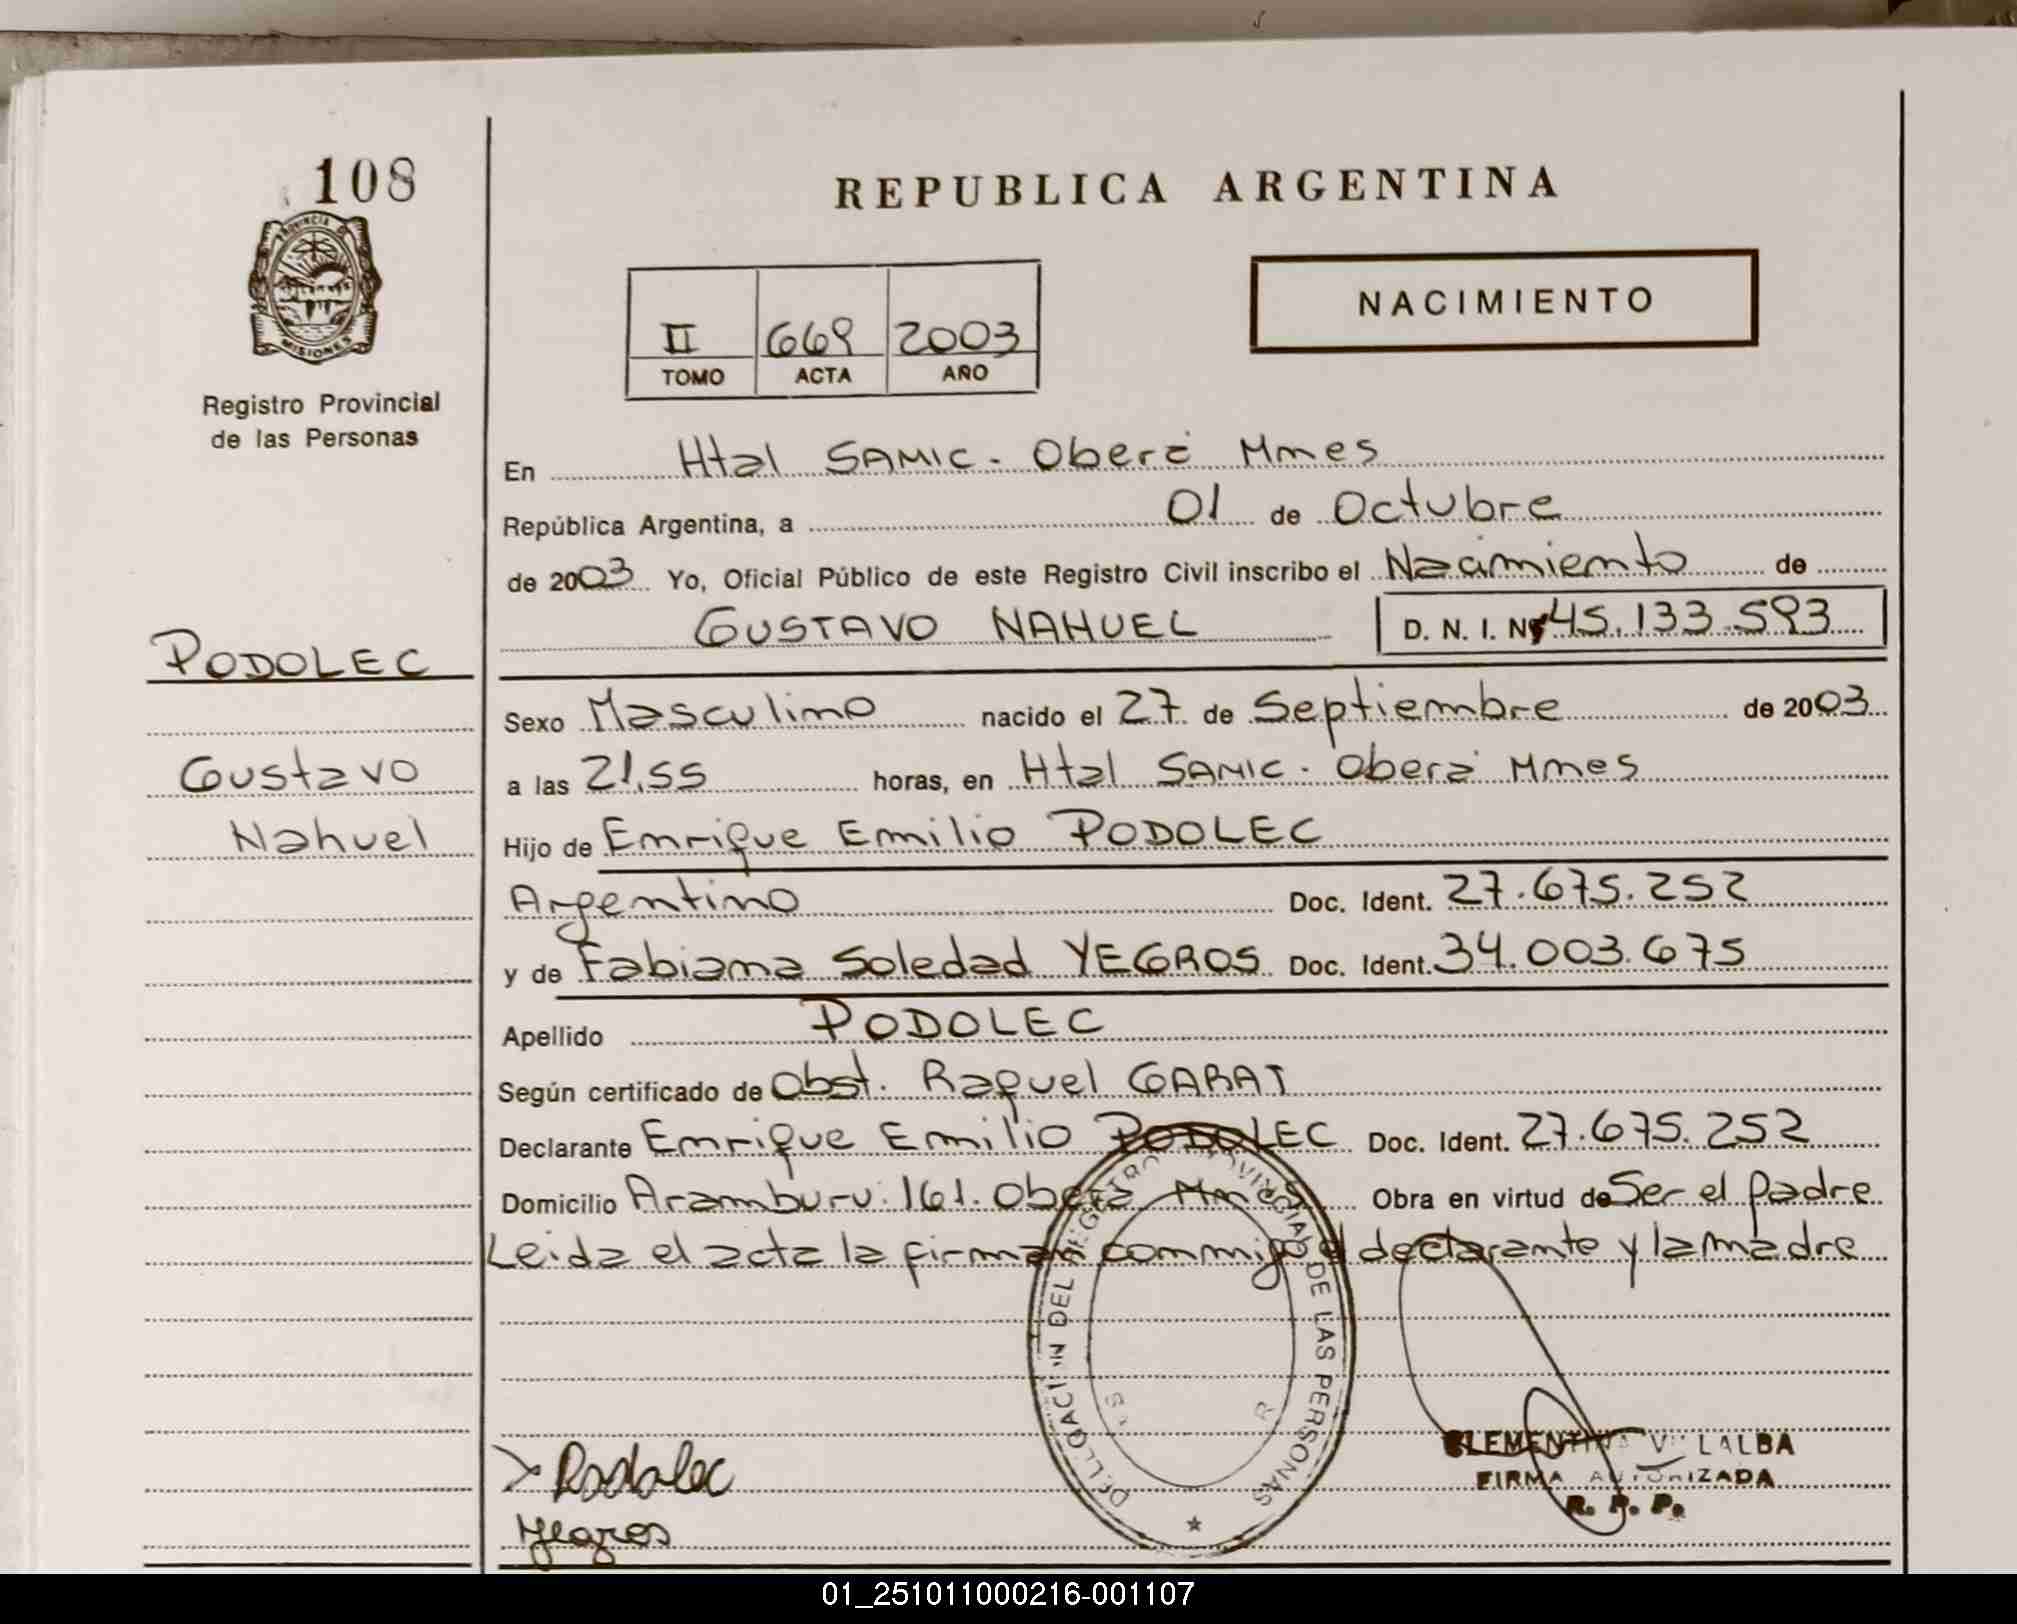 108
PROVINCIA DE
MISIONES
Registro Provincial
de las Personas
REPUBLICA ARGENTINA
NACIMIENTO
II 669 2003
TOMO ACTA AÑO
En Htal SAMIC. Oberá Mnes
República Argentina, a 01 de Octubre
de 2003 Yo, Oficial Público de este Registro Civil inscribo el Nacimiento de
GUSTAVO NAHUEL D. N. I. Nº 45.133.593
PODOLEC
Gustavo
Nahuel
Sexo Masculino nacido el 27 de Septiembre de 2003
a las 21,55 horas, en Htal SAMIC. Oberá Mnes
Hijo de Enrique Emilio PODOLEC
Argentino Doc. Ident. 27.675.252
y de Fabiana Soledad YEGROS Doc. Ident. 34.003.675
Apellido PODOLEC
Según certificado de Obst. Raquel GARAT
Declarante Enrique Emilio PODOLEC Doc. Ident. 27.675.252
Domicilio Aramburu 161. Oberá Mnes Obra en virtud de Ser el Padre
Leida el acta la firman conmigo el declarante y la madre
DELEGACION DEL REGISTRO PROVINCIAL DE LAS PERSONAS
Podolec
Yegros
CLEMENTINA VILLALBA
FIRMA AUTORIZADA
R. P. P.
01_251011000216-001107